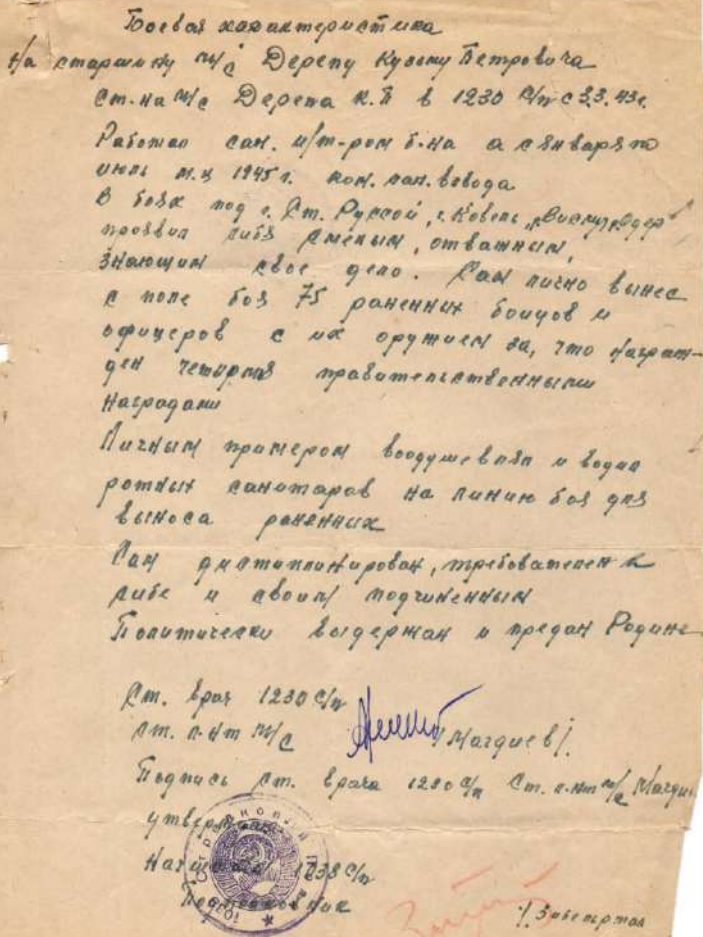 Боевая характеристика
На старшину м/с Дерепу Кузьму Петровича
Ст-на м/с Дерепа К.П в 1230 с/п с 3.3.43г.
Работал сан. и/т-ром б-на а с января по
июль м.ц 1945 г. ком. сан. взвода
В боях под г. Ст. Руссой, г. Ковель, „Висму, Одер"
проявил себя смелым, отважным,
знающим свое дело. Сам лично вынес
с поле боя 75 раненных бойцов и
офицеров с их оружием за, что награж-
ден четырмя правительственными
наградами
Личным примером воодушевлял и водил
ротных санитаров на линию боя для
выноса раненных
Сам дистиплинирован, требователен к
себе и своим подчиненным
Политически выдержан и предан Родине
Ст. врач 1230 с/п
ст. л-нт м/с /Магдиев/.
Подпись ст. врача 1230 с/п ст. л-нт м/с
1230 с/п
Подполковник